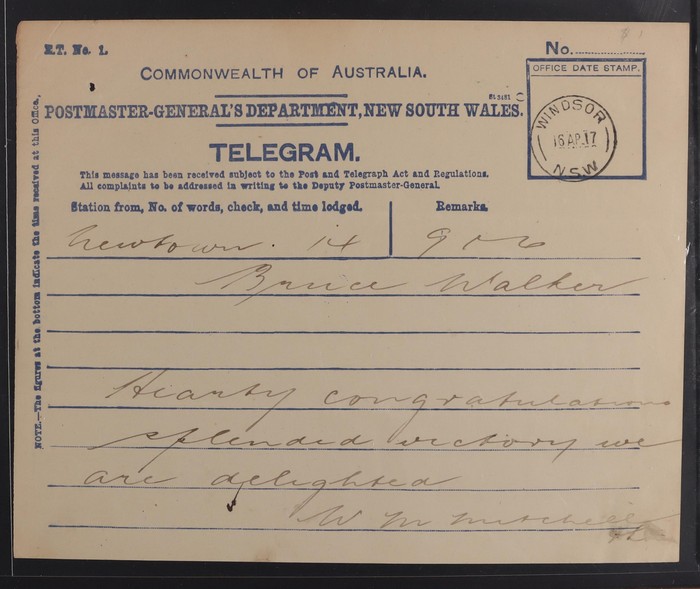 R.T. No. 1.
No.
COMMONWEALTH OF AUSTRALIA.
OFFICE DATE STAMP.
POSTMASTER-GENERAL'S DEPARTMENT, NEW SOUTH WALES.
WINDSOR
16 AP.17
N.S.W
TELEGRAM.
This message has been received subject to the Post and Telegraph Act and Regulations.
All complaints to be addressed in writing to the Deputy Postmaster-General.
Station from, No. of words, check, and time lodged. Remarks.
Newtown. 14 906
Bruce Walker
Hearty congratulations
splendid victory we
are delighted
W M Mitchell
NOTE.—The figures at the bottom indicate the time received at this Office.